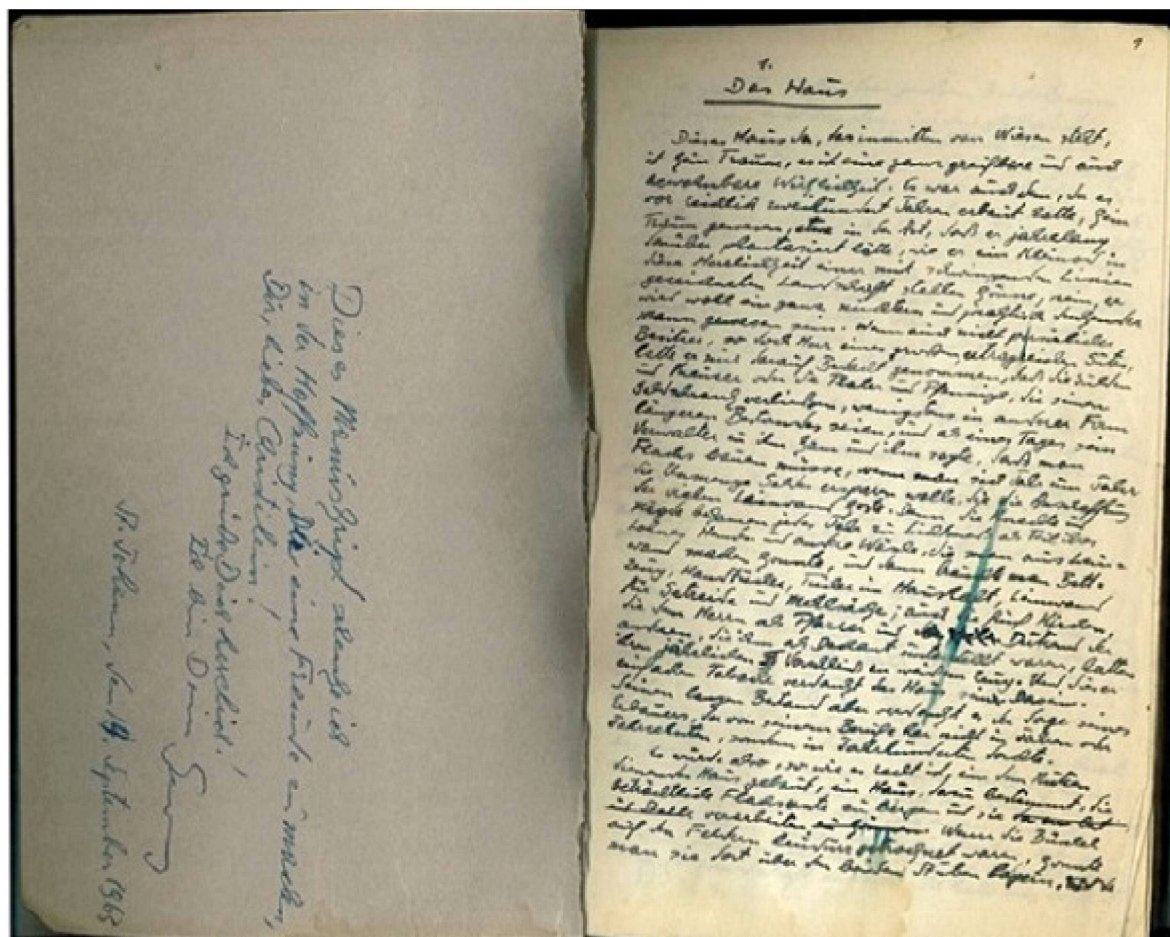 Dieses Manuskript schenke ich
in der Hoffnung, Dir eine Freude zu machen,
Dir, liebe
Dich herzlich!
Dein
St. Johann, den 19. September 1963
1
1.
Das Haus
Dieses Haus da, das inmitten von Wiesen steht,
ist kein Traum, es ist eine ganz greifbare und auch
bewohnbare Wirklichkeit. Es war auch dem, der es
vor reichlich zweihundert Jahren erbaut hatte, kein
Traum gewesen, etwa in der Art, daß er jahrelang
darüber phantasiert hätte, wie er ein Kleinod in
diese Herrlichkeit einer mit schwingenden Linien
gezeichneten Landschaft stellen könne, nein, er
wird wohl ein ganz nüchtern und praktisch denkender
Mann gewesen sein. Wenn auch nicht persönlicher
Besitzer, so doch Herr eines großen erträgnisreichen Gutes,
hatte er nur darauf Bedacht genommen, daß die Gulden
und Kreuzer oder die Thaler und Pfennige, die seinen
verließen, wenigstens in anderer Form
längeren Bestandes seien, und als eines Tages sein
Verwalter zu ihm kam und ihm sagte, daß man
Flachs bauen müsse, wenn man sich alle Jahre
die Unmenge Gulden ersparen wolle, die die Beschaffung
der vielen Leinwand koste. Denn die Knechte und
Mägde bekamen jedes Jahr zu Lichtmeß als Teil ihres
Lohnes Hemden und andere Wäsche, die man aus Lein-
wand machen konnte, und dann brauchte man Bett-
zeug, Handtücher, Tücher im Haushalt, Leinwand
für Getreide und Mehlsäcke; auch die fünf Kirchen,
die dem Herrn als Pfarrer und Dutzend der
anderen, die ihm als Dechant unterstellt waren, hatten
ihren jährlichen Verschleiß an weißem Zeug. Und dieser
einfachen Tatsache verdankt das Haus sein Dasein.
Seinen langen Bestand aber verdankt es der Sorge seines
Erbauers, der von seinem Berufe her nicht in Jahren oder
Jahrzehnten, sondern in Jahrhunderten dachte.
Es wurde also, so wie es recht ist, ein dem Nutzen
dienendes Haus gebaut, ein Haus, dazu bestimmt, die
beträchtliche Flachsernte zu bergen und sie
verarbeiten Wenn die Büschel
auf den Feldern getrocknet waren, konnte
man sie dort über den beiden Stuben lagern,